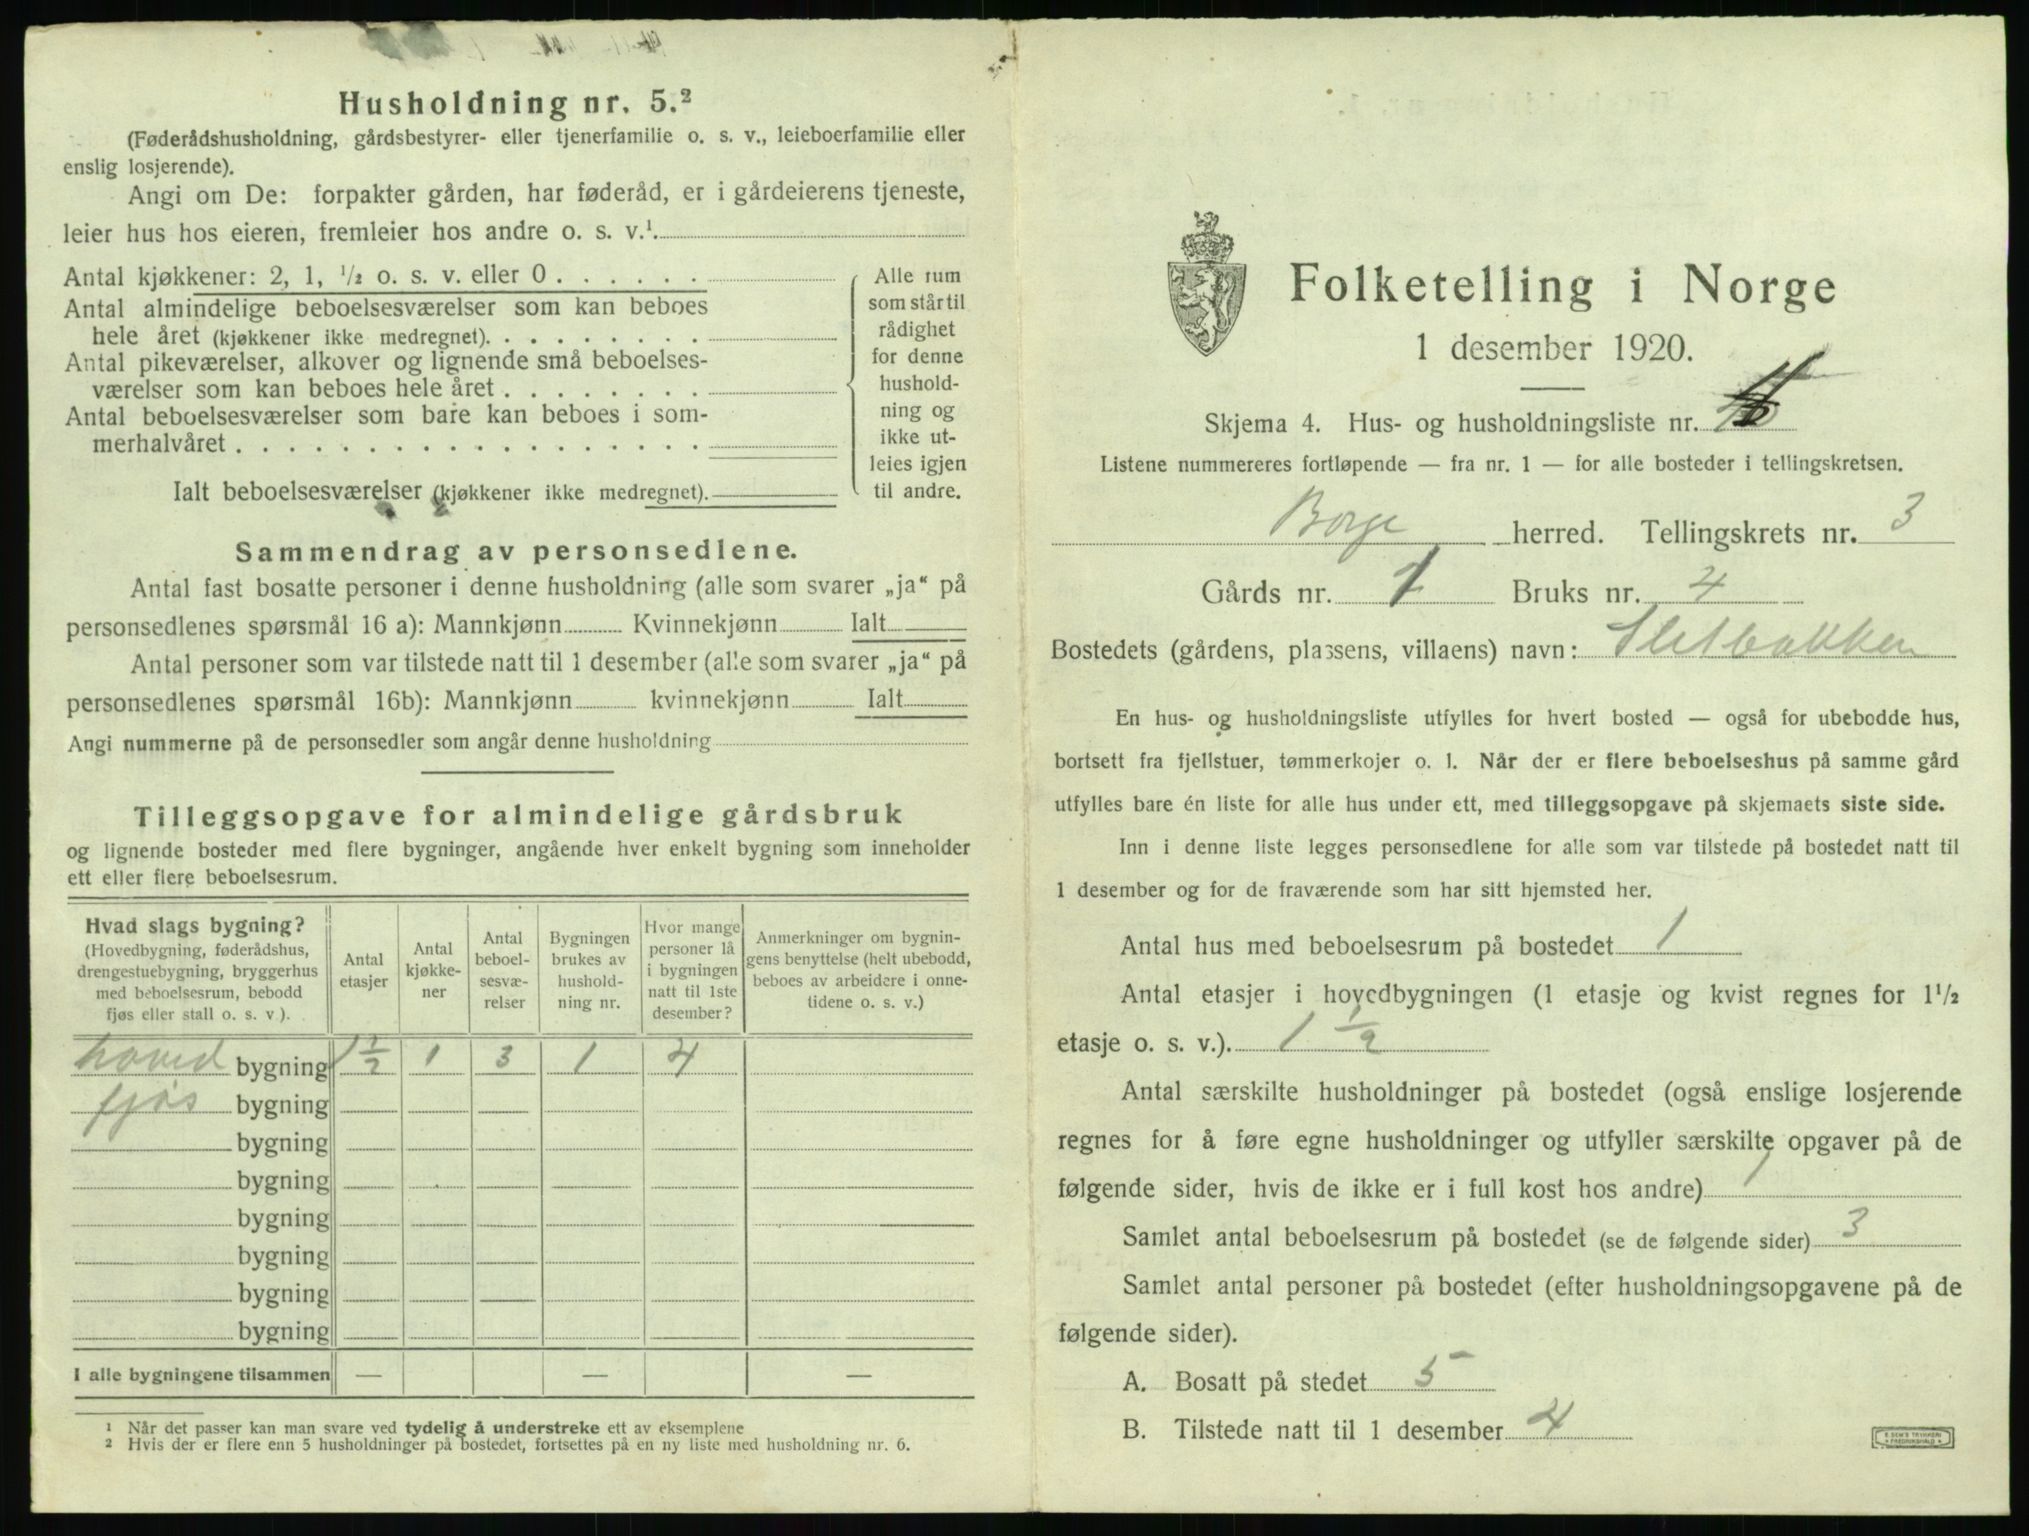 Husholdning nr. 5.²
(Føderådshusholdning, gårdsbestyrer- eller tjenerfamilie o. s. v., leieboerfamilie eller
enslig losjerende).
Angi om De: forpakter gården, har føderåd, er i gårdeierens tjeneste,
leier hus hos eieren, fremleier hos andre o. s. v.¹
Antal kjøkkener: 2, 1, ½ o. s. v. eller 0
Antal almindelige beboelsesværelser som kan beboes
hele året (kjøkkener ikke medregnet)
Antal pikeværelser, alkover og lignende små beboelses-
værelser som kan beboes hele året
Antal beboelsesværelser som bare kan beboes i som-
merhalvåret
Ialt beboelsesværelser (kjøkkener ikke medregnet)
Alle rum
som står til
rådighet
for denne
hushold-
ning og
ikke ut-
leies igjen
til andre.
Sammendrag av personsedlene.
Antal fast bosatte personer i denne husholdning (alle som svarer „ja“ på
personsedlenes spørsmål 16 a): Mannkjønn Kvinnekjønn Ialt
Antal personer som var tilstede natt til 1 desember (alle som svarer „ja“ på
personsedlenes spørsmål 16b): Mannkjønn kvinnekjønn Ialt
Angi nummerne på de personsedler som angår denne husholdning
Tilleggsopgave for almindelige gårdsbruk
og lignende bosteder med flere bygninger, angående hver enkelt bygning som inneholder
ett eller flere beboelsesrum.
Hvad slags bygning?
(Hovedbygning, føderådshus,
drengestuebygning, bryggerhus
med beboelsesrum, bebodd
fjøs eller stall o. s. v.).
Antal
etasjer
Antal
kjøkke-
ner
Antal
beboel-
sesvæ-
relser
Bygningen
brukes av
hushold-
ning nr.
Hvor mange
personer lå
i bygningen
natt til 1ste
desember?
Anmerkninger om bygnin-
gens benyttelse (helt ubebodd,
beboes av arbeidere i onne-
tidene o. s. v.)
hoved bygning 1½ 1 3 1 4
fjøs bygning
bygning
bygning
bygning
bygning
bygning
bygning
I alle bygningene tilsammen — — —
¹ Når det passer kan man svare ved tydelig å understreke ett av eksemplene
² Hvis der er flere enn 5 husholdninger på bostedet, fortsettes på en ny liste med husholdning nr. 6.
Folketelling i Norge
1 desember 1920.
Skjema 4. Hus- og husholdningsliste nr.
Listene nummereres fortløpende — fra nr. 1 — for alle bosteder i tellingskretsen.
Borge herred. Tellingskrets nr. 3
Gårds nr. 1 Bruks nr. 4
Bostedets (gårdens, plassens, villaens) navn: Sletbakken
En hus- og husholdningsliste utfylles for hvert bosted — også for ubebodde hus,
bortsett fra fjellstuer, tømmerkojer o. l. Når der er flere beboelseshus på samme gård
utfylles bare én liste for alle hus under ett, med tilleggsopgave på skjemaets siste side.
Inn i denne liste legges personsedlene for alle som var tilstede på bostedet natt til
1 desember og for de fraværende som har sitt hjemsted her.
Antal hus med beboelsesrum på bostedet 1
Antal etasjer i hovedbygningen (1 etasje og kvist regnes for 1½
etasje o. s. v.). 1 ½
Antal særskilte husholdninger på bostedet (også enslige losjerende
regnes for å føre egne husholdninger og utfyller særskilte opgaver på de
følgende sider, hvis de ikke er i full kost hos andre) 1
Samlet antal beboelsesrum på bostedet (se de følgende sider) 3
Samlet antal personer på bostedet (efter husholdningsopgavene på de
følgende sider).
A. Bosatt på stedet 5
B. Tilstede natt til 1 desember 4